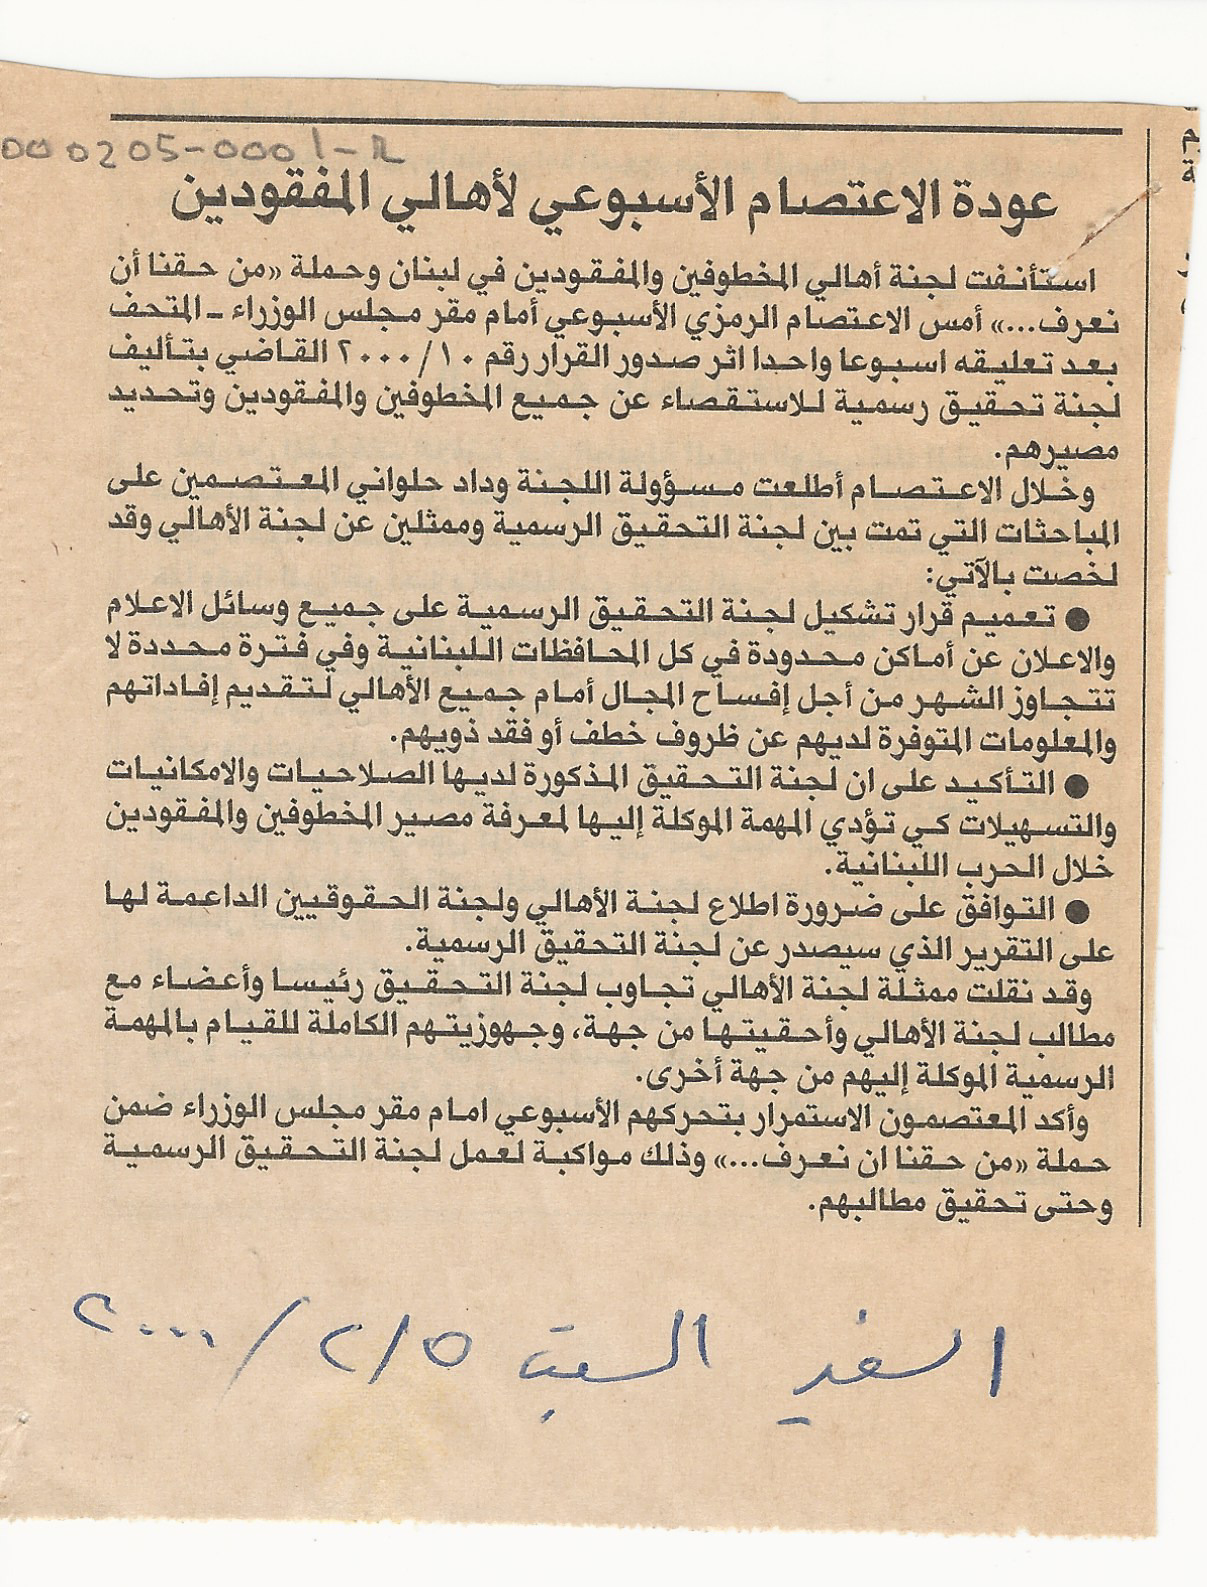 000205-0001-R
عودة الاعتصام الأسبوعي لأهالي المفقودين
استأنفت لجنة أهالي المخطوفين والمفقودين في لبنان وحملة «من حقنا أن
نعرف...» أمس الاعتصام الرمزي الأسبوعي أمام مقر مجلس الوزراء ـ المتحف
بعد تعليقه اسبوعا واحدا اثر صدور القرار رقم ٢٠٠٠/١٠ القاضي بتأليف
لجنة تحقيق رسمية للاستقصاء عن جميع المخطوفين والمفقودين وتحديد
مصيرهم.
وخلال الاعتصام أطلعت مسؤولة اللجنة وداد حلواني المعتصمين على
المباحثات التي تمت بين لجنة التحقيق الرسمية وممثلين عن لجنة الأهالي وقد
لخصت بالآتي:
● تعميم قرار تشكيل لجنة التحقيق الرسمية على جميع وسائل الاعلام
والاعلان عن أماكن محدودة في كل المحافظات اللبنانية وفي فترة محددة لا
تتجاوز الشهر من أجل إفساح المجال أمام جميع الأهالي لتقديم إفاداتهم
والمعلومات المتوفرة لديهم عن ظروف خطف أو فقد ذويهم.
● التأكيد على ان لجنة التحقيق المذكورة لديها الصلاحيات والامكانيات
والتسهيلات كي تؤدي المهمة الموكلة إليها لمعرفة مصير المخطوفين والمفقودين
خلال الحرب اللبنانية.
● التوافق على ضرورة اطلاع لجنة الأهالي ولجنة الحقوقيين الداعمة لها
على التقرير الذي سيصدر عن لجنة التحقيق الرسمية.
وقد نقلت ممثلة لجنة الأهالي تجاوب لجنة التحقيق رئيسا وأعضاء مع
مطالب لجنة الأهالي وأحقيتها من جهة، وجهوزيتهم الكاملة للقيام بالمهمة
الرسمية الموكلة إليهم من جهة أخرى.
وأكد المعتصمون الاستمرار بتحركهم الأسبوعي امام مقر مجلس الوزراء ضمن
حملة «من حقنا ان نعرف...» وذلك مواكبة لعمل لجنة التحقيق الرسمية
وحتى تحقيق مطالبهم.
السفير السبت ٥/٢/٢٠٠٠